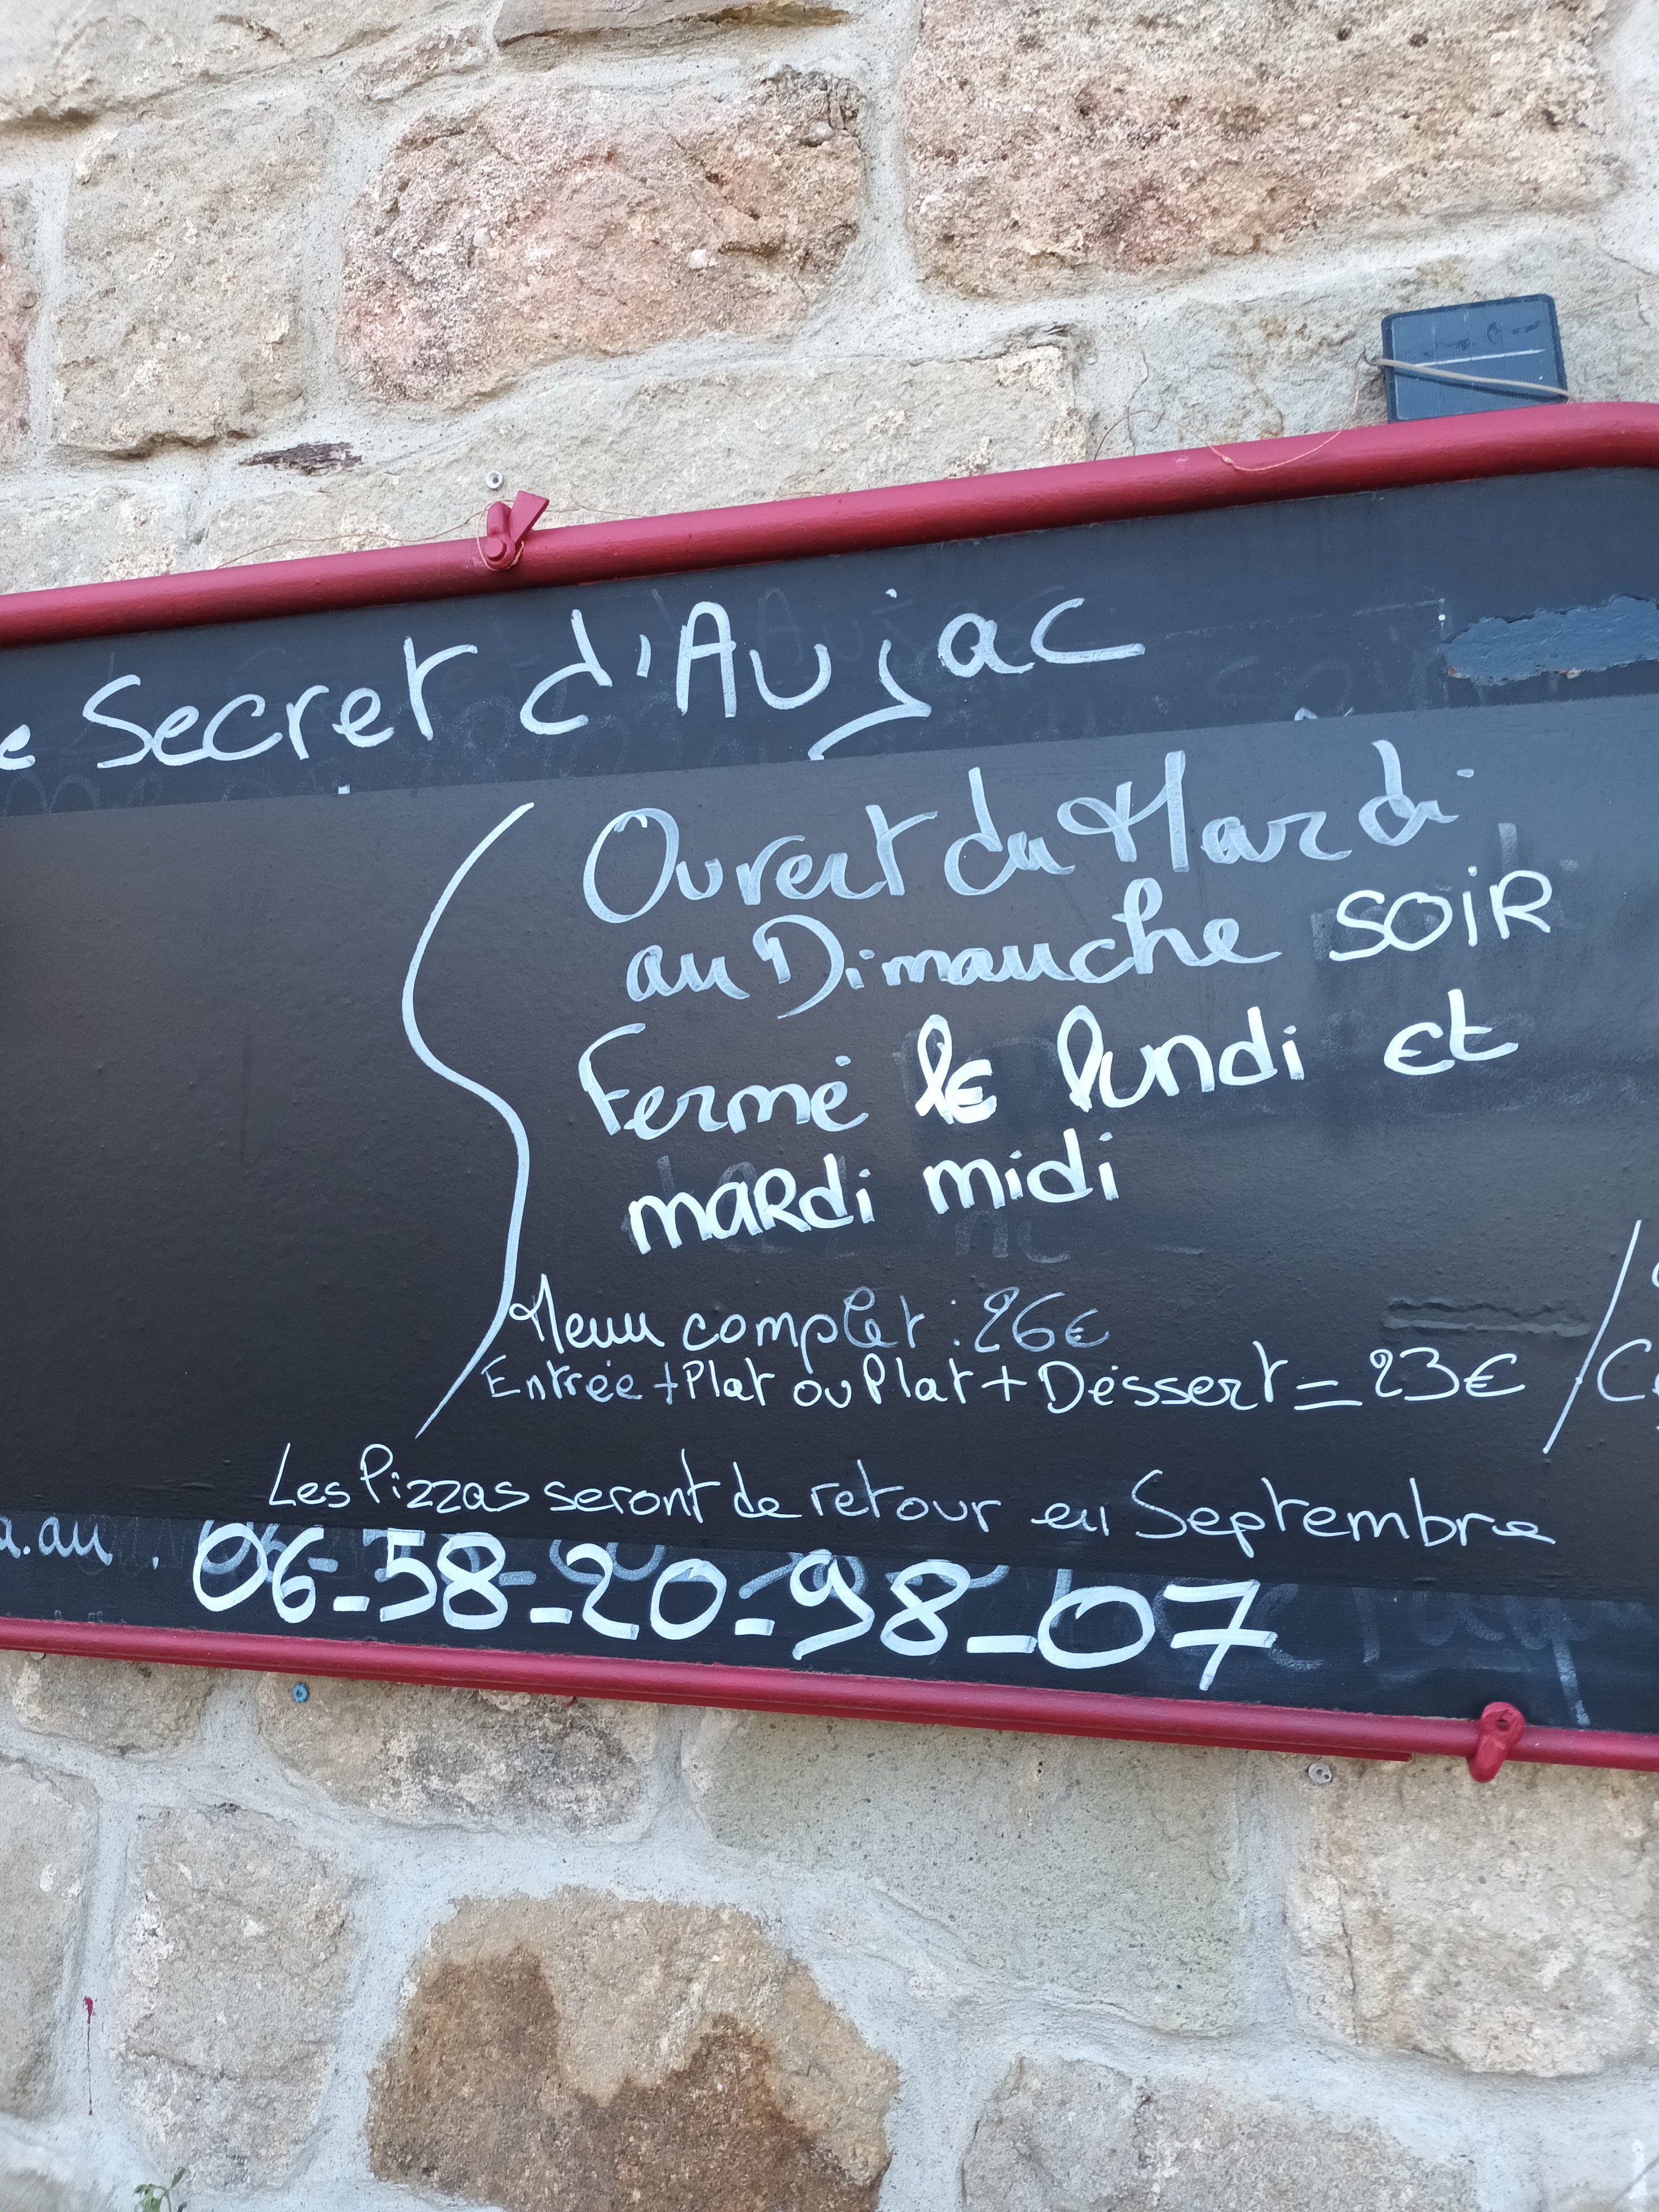 e Secret d'Aujac
Ouvert du Mardi
au Dimanche SOIR
Fermé le lundi et
mardi midi
Menu complet : 26€
Entrée + Plat ou Plat + Déssert = 23€ /
Les Pizzas seront de retour en Septembre
au . 06-58-20-98-07